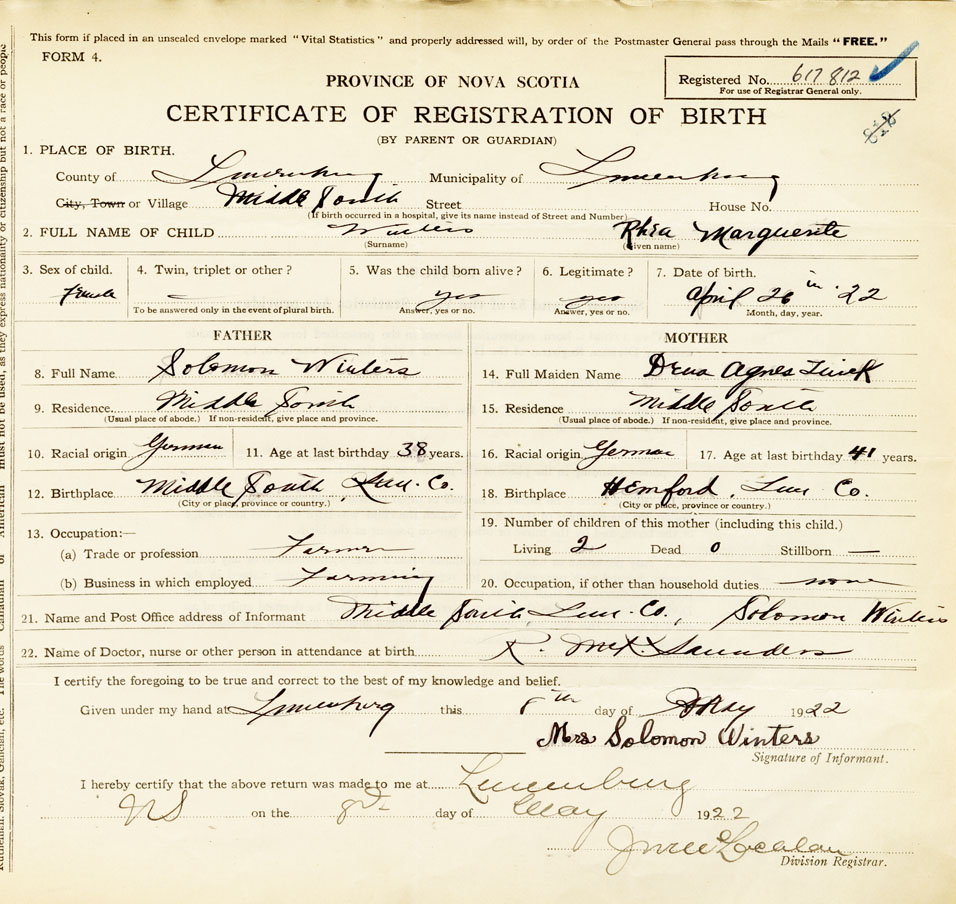 This form if placed in an unsealed envelope marked "Vital Statistics" and properly addressed will, by order of the Postmaster General pass through the Mails "FREE."
FORM 4.
Registered No. 617812
For use of Registrar General only.
PROVINCE OF NOVA SCOTIA
CERTIFICATE OF REGISTRATION OF BIRTH
(BY PARENT OR GUARDIAN)
1. PLACE OF BIRTH.
County of Lunenburg Municipality of Lunenburg
City, Town or Village Middle South Street House No.
(If birth occurred in a hospital, give its name instead of Street and Number)
2. FULL NAME OF CHILD Winters Rhea Marguerite
(Surname) (Given name)
3. Sex of child. 4. Twin, triplet or other? 5. Was the child born alive? 6. Legitimate? 7. Date of birth.
Female – yes yes April 26 in '22
To be answered only in the event of plural birth. Answer, yes or no. Answer, yes or no. Month, day, year.
FATHER
8. Full Name Solomon Winters
9. Residence Middle South
(Usual place of abode.) If non-resident, give place and province.
10. Racial origin German 11. Age at last birthday 38 years.
12. Birthplace Middle South Lun. Co.
(City or place, province or country.)
13. Occupation:—
(a) Trade or profession Farmer
(b) Business in which employed Farming
MOTHER
14. Full Maiden Name Agnes
15. Residence Middle South
(Usual place of abode.) If non-resident, give place and province.
16. Racial origin German 17. Age at last birthday 41 years.
18. Birthplace Hemford, Lun Co.
(City or place, province or country.)
19. Number of children of this mother (including this child.)
Living 2 Dead 0 Stillborn —
20. Occupation, if other than household duties none
21. Name and Post Office address of Informant Middle South Lun. Co., Solomon Winters
22. Name of Doctor, nurse or other person in attendance at birth R. Saunders
I certify the foregoing to be true and correct to the best of my knowledge and belief.
Given under my hand at Lunenburg this 8th day of May 1922
Mrs Solomon Winters
Signature of Informant.
I hereby certify that the above return was made to me at Lunenburg
NS on the 8th day of May 1922
Division Registrar.